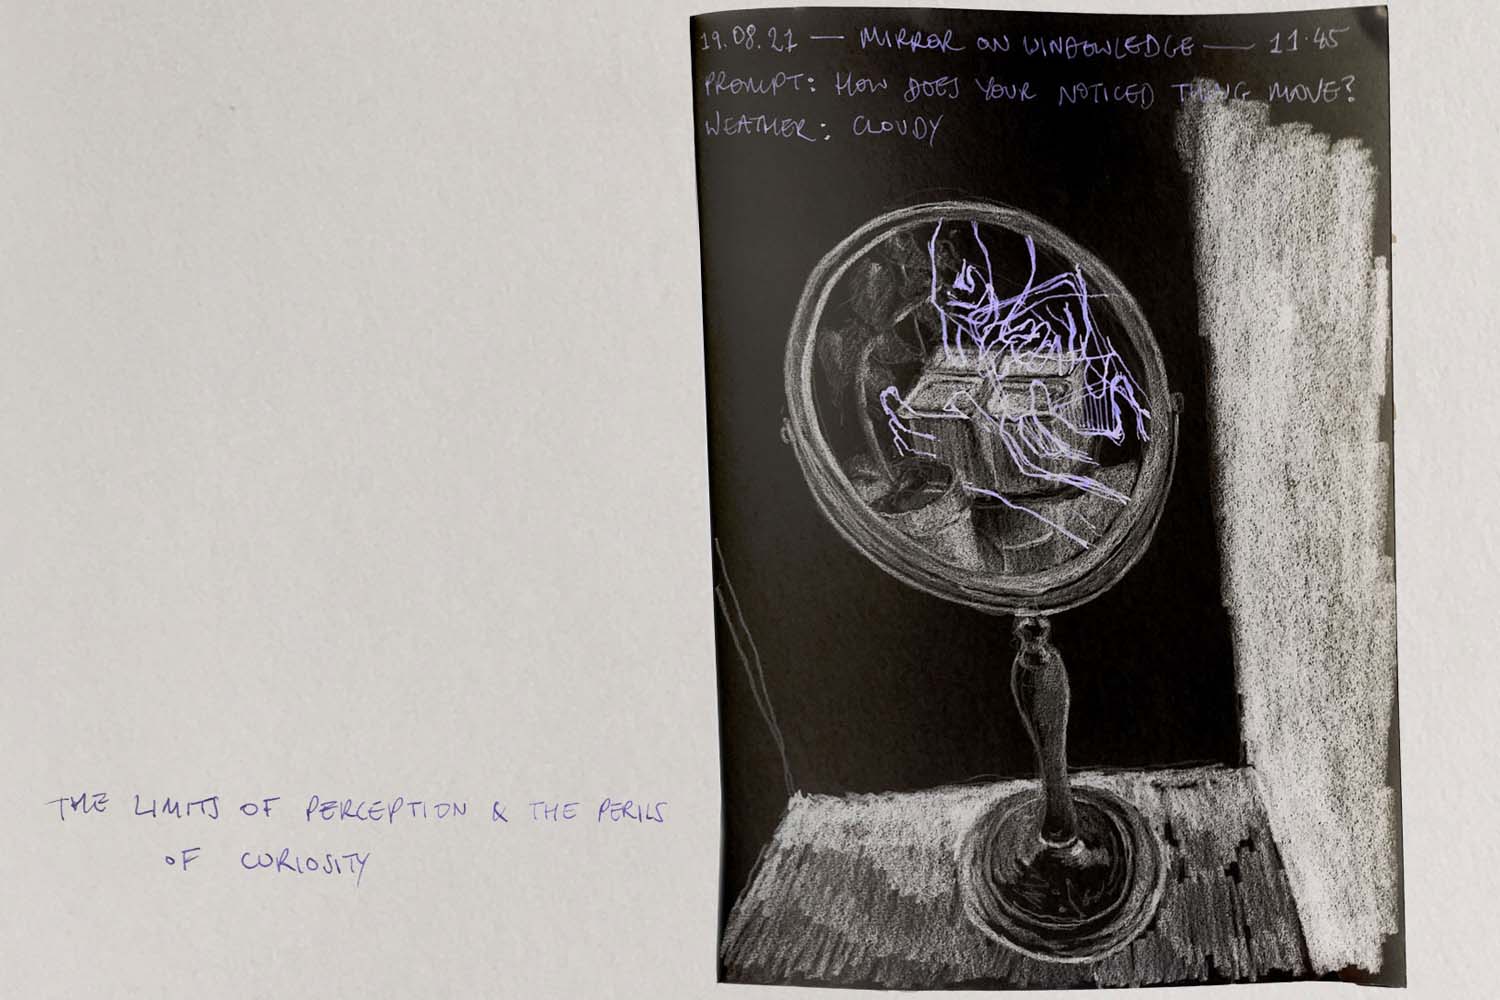 19.08.21 — MIRROR ON WINDOWLEDGE — 11.45
PROMPT: HOW DOES YOUR NOTICED THING MOVE?
WEATHER: CLOUDY
THE LIMITS OF PERCEPTION & THE PERILS
OF CURIOSITY